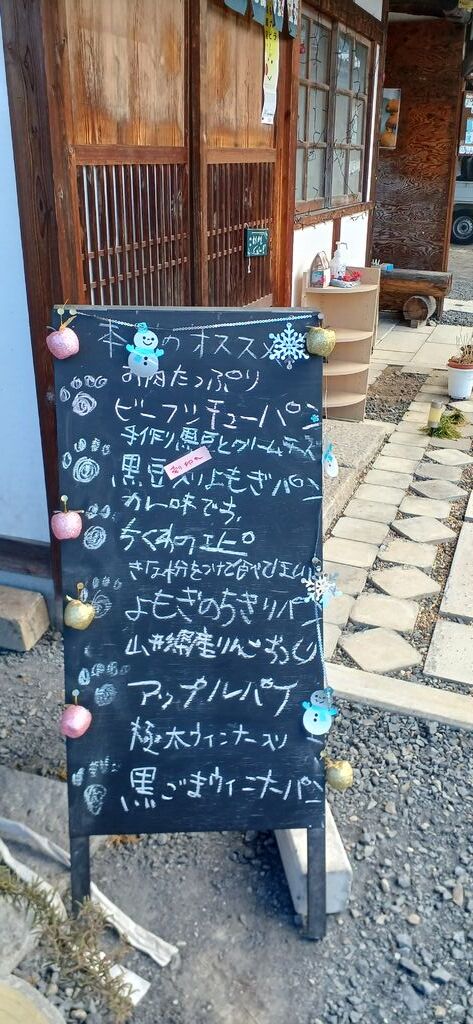 本日のオススメ
お肉たっぷり
ビーフシチューパン
手作り黒豆とクリームチーズ
黒豆入りよもぎパン
カレー味です。
ちくわのエピ
きな粉をつけて食べて下さい
よもぎのちぎりパン
山形県産りんごづくし
アップルパイ
極太ウィンナー入り
黒ごまウィンナーパン